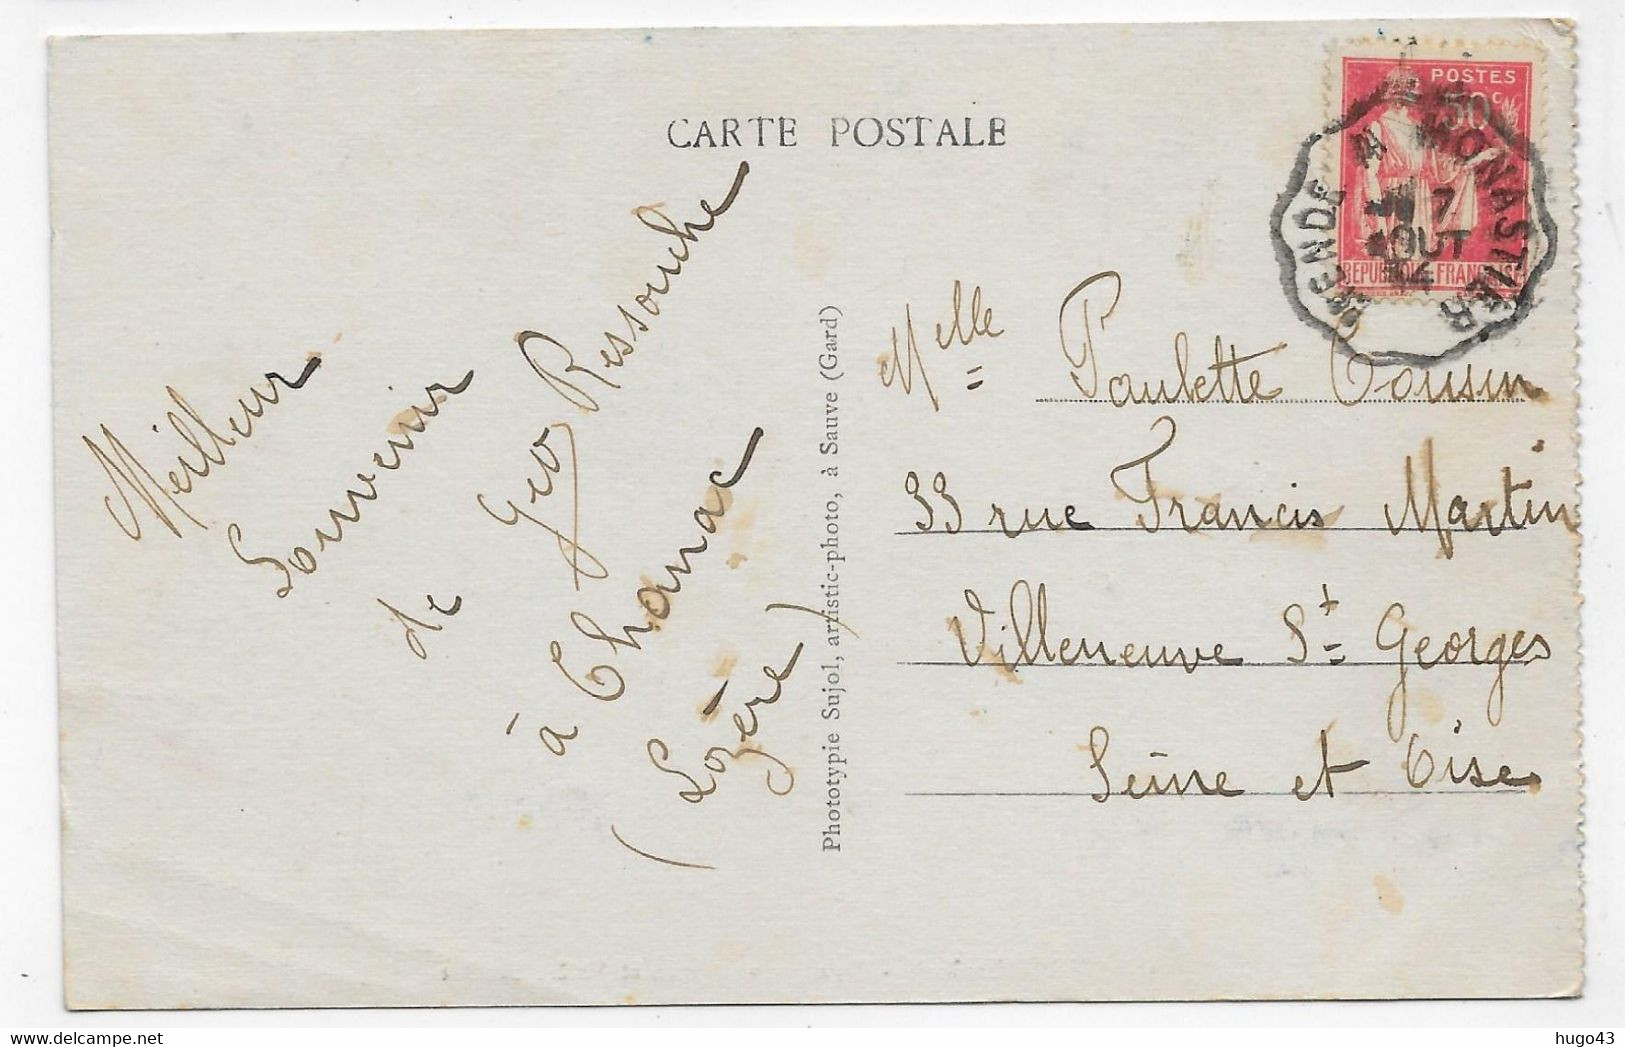 CARTE POSTALE
POSTES
50c
REPUBLIQUE FRANÇAISE
MENDE A MONASTIER
7
AOUT
34
Meilleur
Souvenir
de Geo Ressouche
à Chanac
(Lozère)
Phototypie Sujol, artistic-photo, à Sauve (Gard)
Melle Paulette Cousin
33 rue Francis Martin
Villeneuve St Georges
Seine et Oise
hugo43